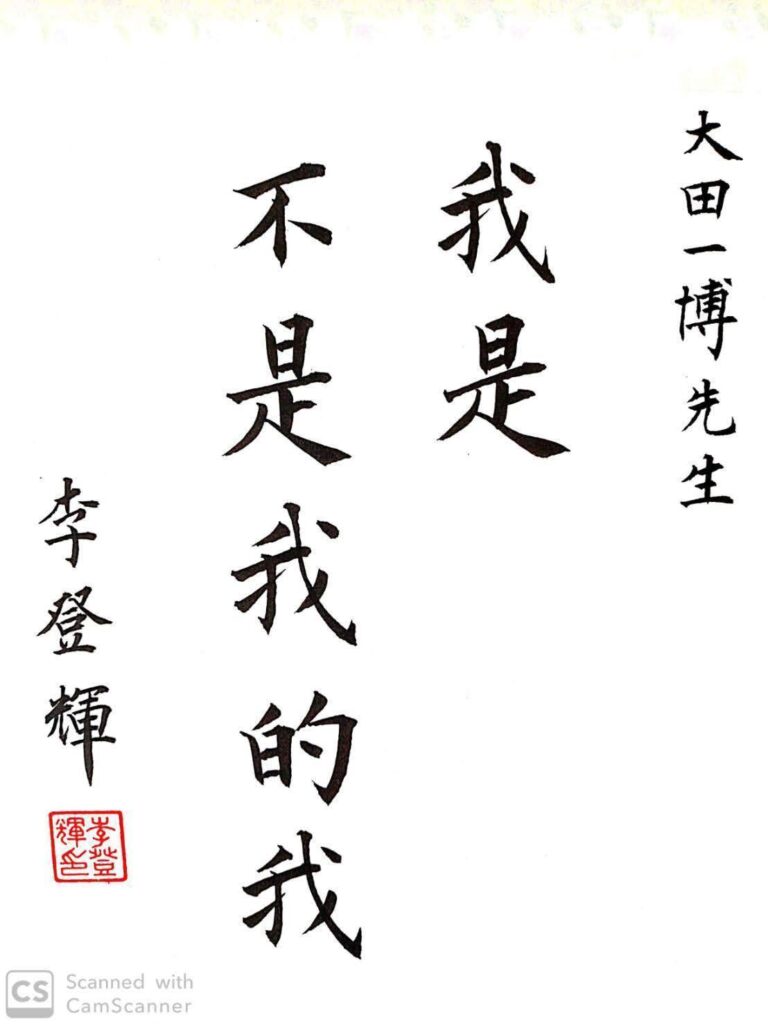 大田一博先生
我是
不是我的我
李登輝
李登輝印
CS Scanned with
CamScanner